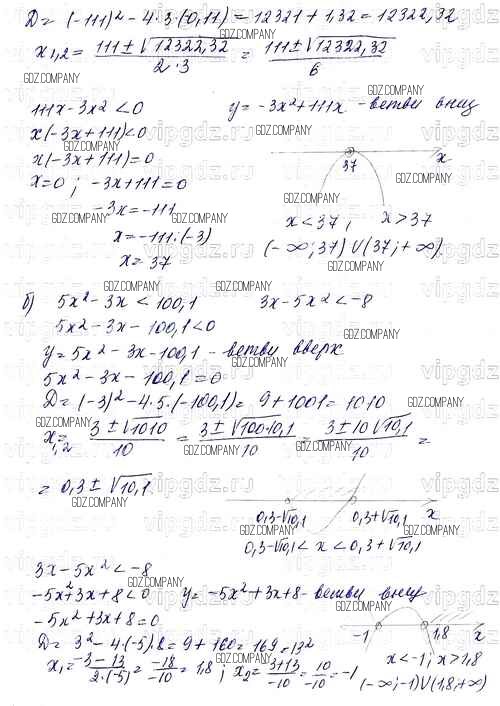 D = (-111)² - 4·3·(0,11) = 12321 + 1,32 = 12322,32
x₁,₂ = (111 ± √12322,32)/(2·3) = (111 ± √12322,32)/6
111x - 3x² < 0
y = -3x² + 111x - ветви вниз
x(-3x + 111) < 0
x(-3x + 111) = 0
x = 0 ; -3x + 111 = 0
-3x = -111
x = -111 : (-3)
x = 37
37 x
x < 37 ; x > 37
(-∞; 37) ∪ (37; +∞)
б) 5x² - 3x < 100,1
3x - 5x² < -8
5x² - 3x - 100,1 < 0
y = 5x² - 3x - 100,1 - ветви вверх
5x² - 3x - 100,1 = 0
D = (-3)² - 4·5·(-100,1) = 9 + 1001 = 1010
x₁,₂ = (3 ± √1010)/10 = (3 ± √100·10,1)/10 = (3 ± 10√10,1)/10 =
= 0,3 ± √10,1
0,3-√10,1 0,3+√10,1 x
0,3-√10,1 < x < 0,3+√10,1
3x - 5x² < -8
-5x² + 3x + 8 < 0
y = -5x² + 3x + 8 - ветви вниз
-5x² + 3x + 8 = 0
D = 3² - 4·(-5)·8 = 9 + 160 = 169 = 13²
-1 1,8 x
x₁ = (-3-13)/(2·(-5)) = -18/-10 = 1,8 ; x₂ = (3+13)/-10 = 10/-10 = -1
x < -1 ; x > 1,8
(-∞; -1) ∪ (1,8; +∞)
GDZ.COMPANY
vipgdz.ru